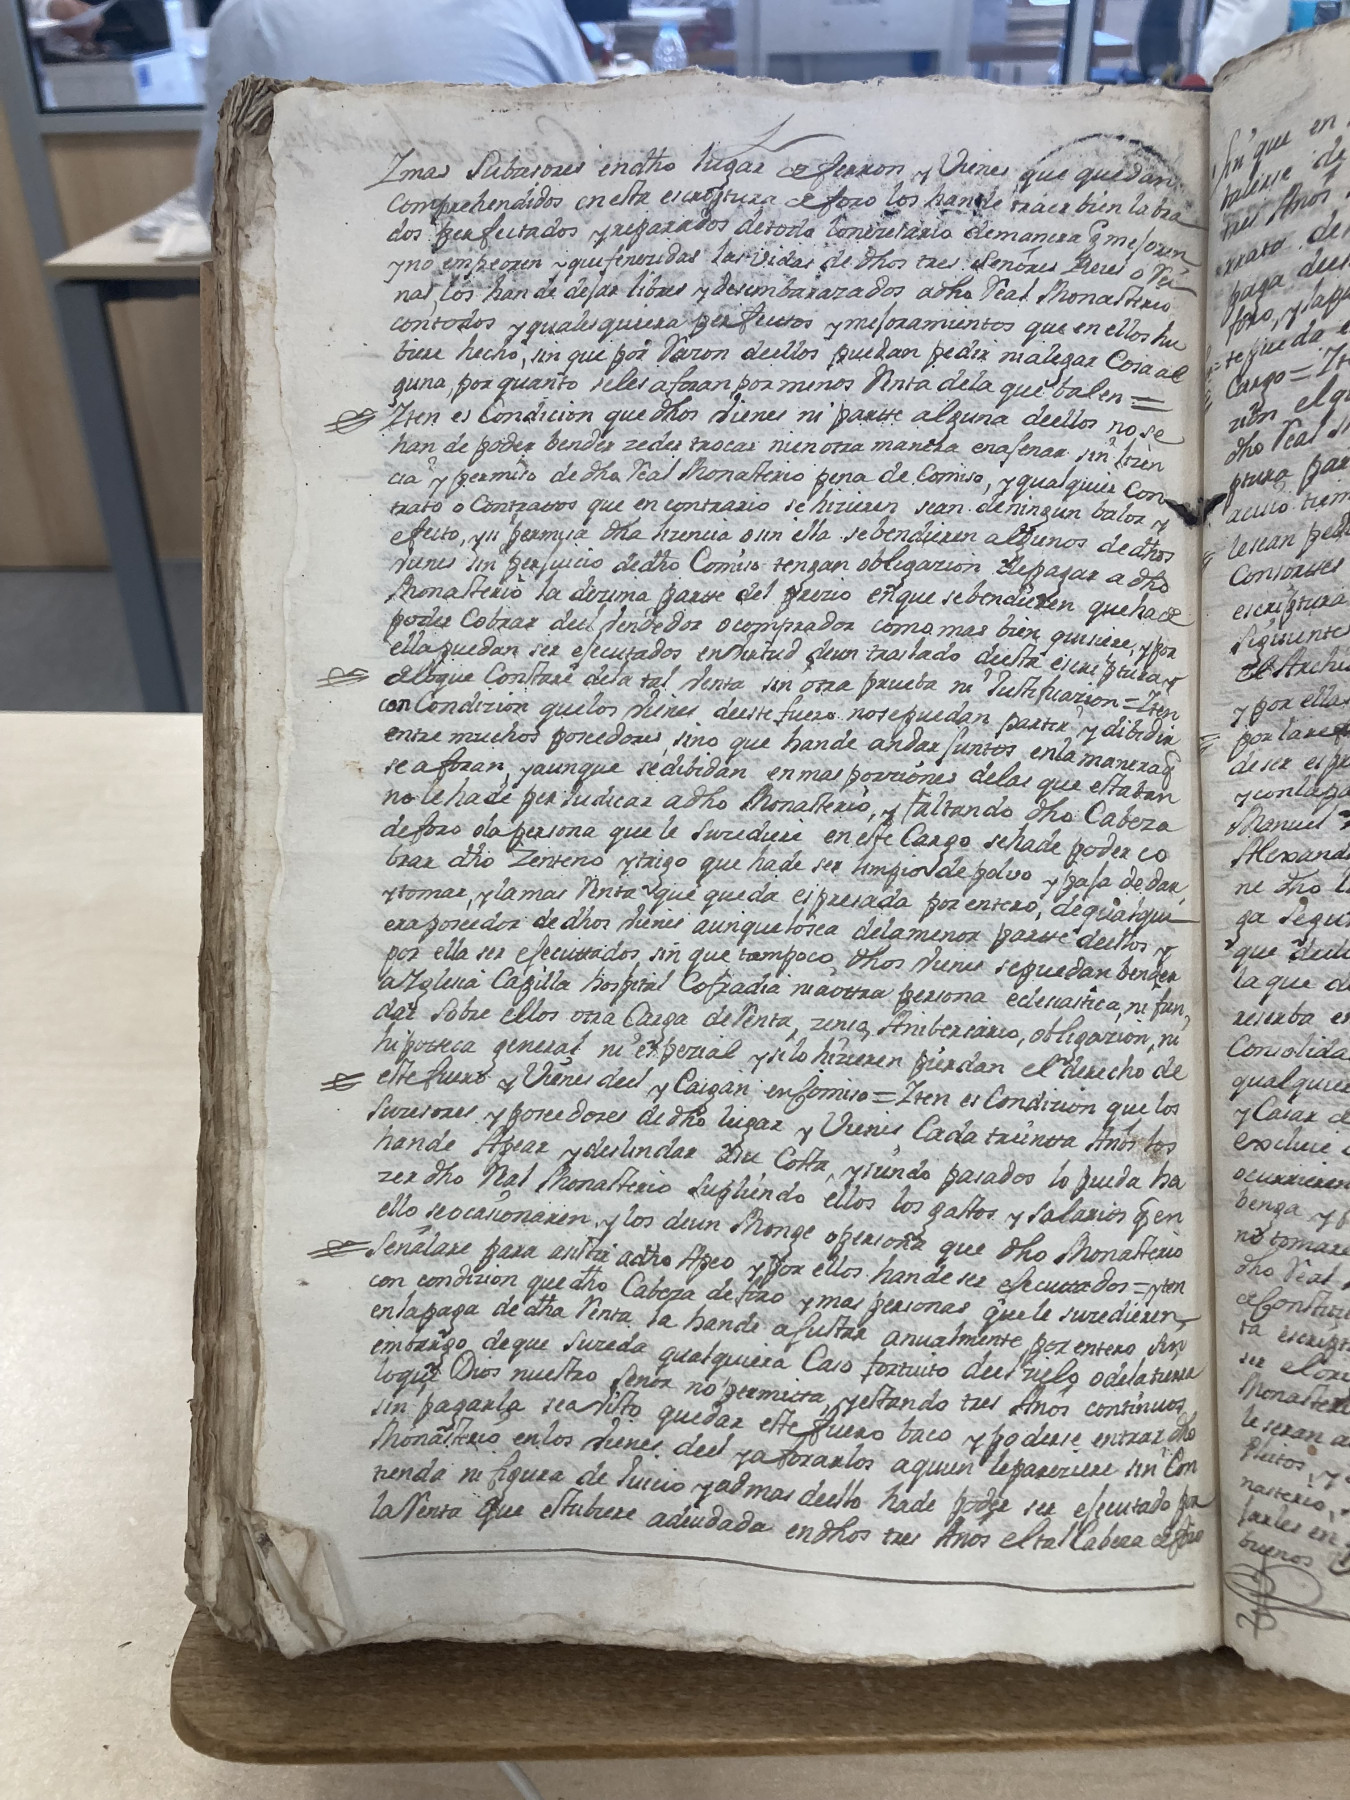 Y mas Subzesores en dho lugar de ferron y Vienes que quedan
comprehendidos en esta escriptura de foro los han de traer bien labra
dos perfectados y reparados de todo lo nezesario de manera q mejoren
y no empeoren y que fenezidas las vidas de dhos tres Señores Reies o Rei
nas los han de dejar libres y desembarazados a dho Real Monasterio
con todos y qualesquiera perfectos y mejoramientos que en ellos hu
biere hecho, sin que por Razon de ellos puedan pedir ni alegar Cosa al
guna, por quanto se les aforan por menos Renta de la que balen =
Yten es Condicion que dhos Vienes ni parte alguna de ellos no se
han de poder bender zeder trocar ni en otra manera enajenar sin lizen
cia y permiso de dho Real Monasterio pena de Comiso, y qualquier Con
trato o Contratos que en contrario se hizieren sean de ningun balor y
efecto, y si permisa dha lizencia o sin ella se bendieren algunos de dhos
Vienes sin perjuicio de dho Comiso tengan obligazion de pagar a dho
Monasterio la dezima parte del prezio en que se bendieren que ha de
poder Cobrar del Vendedor o comprador como mas bien quisiere, y por
ella puedan ser ejecutados en Virtud de un traslado de esta escriptura y
de lo que Constare de la tal Venta sin otra prueba ni Justificazion = Yten
con Condizion que los Vienes de este fuero no se puedan partir y dibidir
entre muchos poseedores, sino que han de andar juntos en la manera q
se aforan, y aunque se dibidan en mas porziones de las que estaban
no le ha de perjudicar a dho Monasterio, y faltando dho Cabeza
de foro o la persona que le suzediere en este Cargo se ha de poder co
brar dho Zenteno y trigo que ha de ser limpio de polvo y paja de dar
y tomar, y la mas Renta que queda espresada por entero, de qualqui
era poseedor de dhos Vienes aunque lo sea de la menor parte de ellos y
por ella ser ejecutados, sin que tampoco dhos Vienes se puedan bender
a Yglesia Capilla hospital Cofradia ni a otra persona eclesiastica, ni fun
dar sobre ellos otra Carga de Renta, zenso, Anibersario, obligazion, ni
hipoteca general ni espezial y si lo hizieren pierdan el derecho de
este fuero y Vienes de el y Caigan en Comiso = Yten es Condizion que los
suzesores y poseedores de dho lugar y Vienes Cada treinta Años los
han de Apear y deslindar a su Costa, y siendo pasados lo pueda ha
zer dho Real Monasterio supliendo ellos los gastos y salarios q en
ello se ocasionaren, y los de un Monge o persona que dho Monasterio
señalare para asistir a dho Apeo y por ellos han de ser ejecutados = yten
con condizion que dho Cabeza de foro y mas personas que le suzedieren
en la paga de dha Renta la han de ajustar anualmente por entero sin
embargo de que suzeda qualquiera Caso fortuito del zielo o de la tierra
lo que Dios nuestro Señor no permitta, y estando tres Años continuos
sin pagarla sea Visto quedar este fuero baco y poderse entrar dho
Monasterio en los Vienes de el y aforarlos a quien le pareziere sin Con
tienda ni figura de Juicio y ademas de ello ha de poder ser ejecutado por
la Renta que estubiere adeudada en dhos tres Años el tal Cabeza de foro